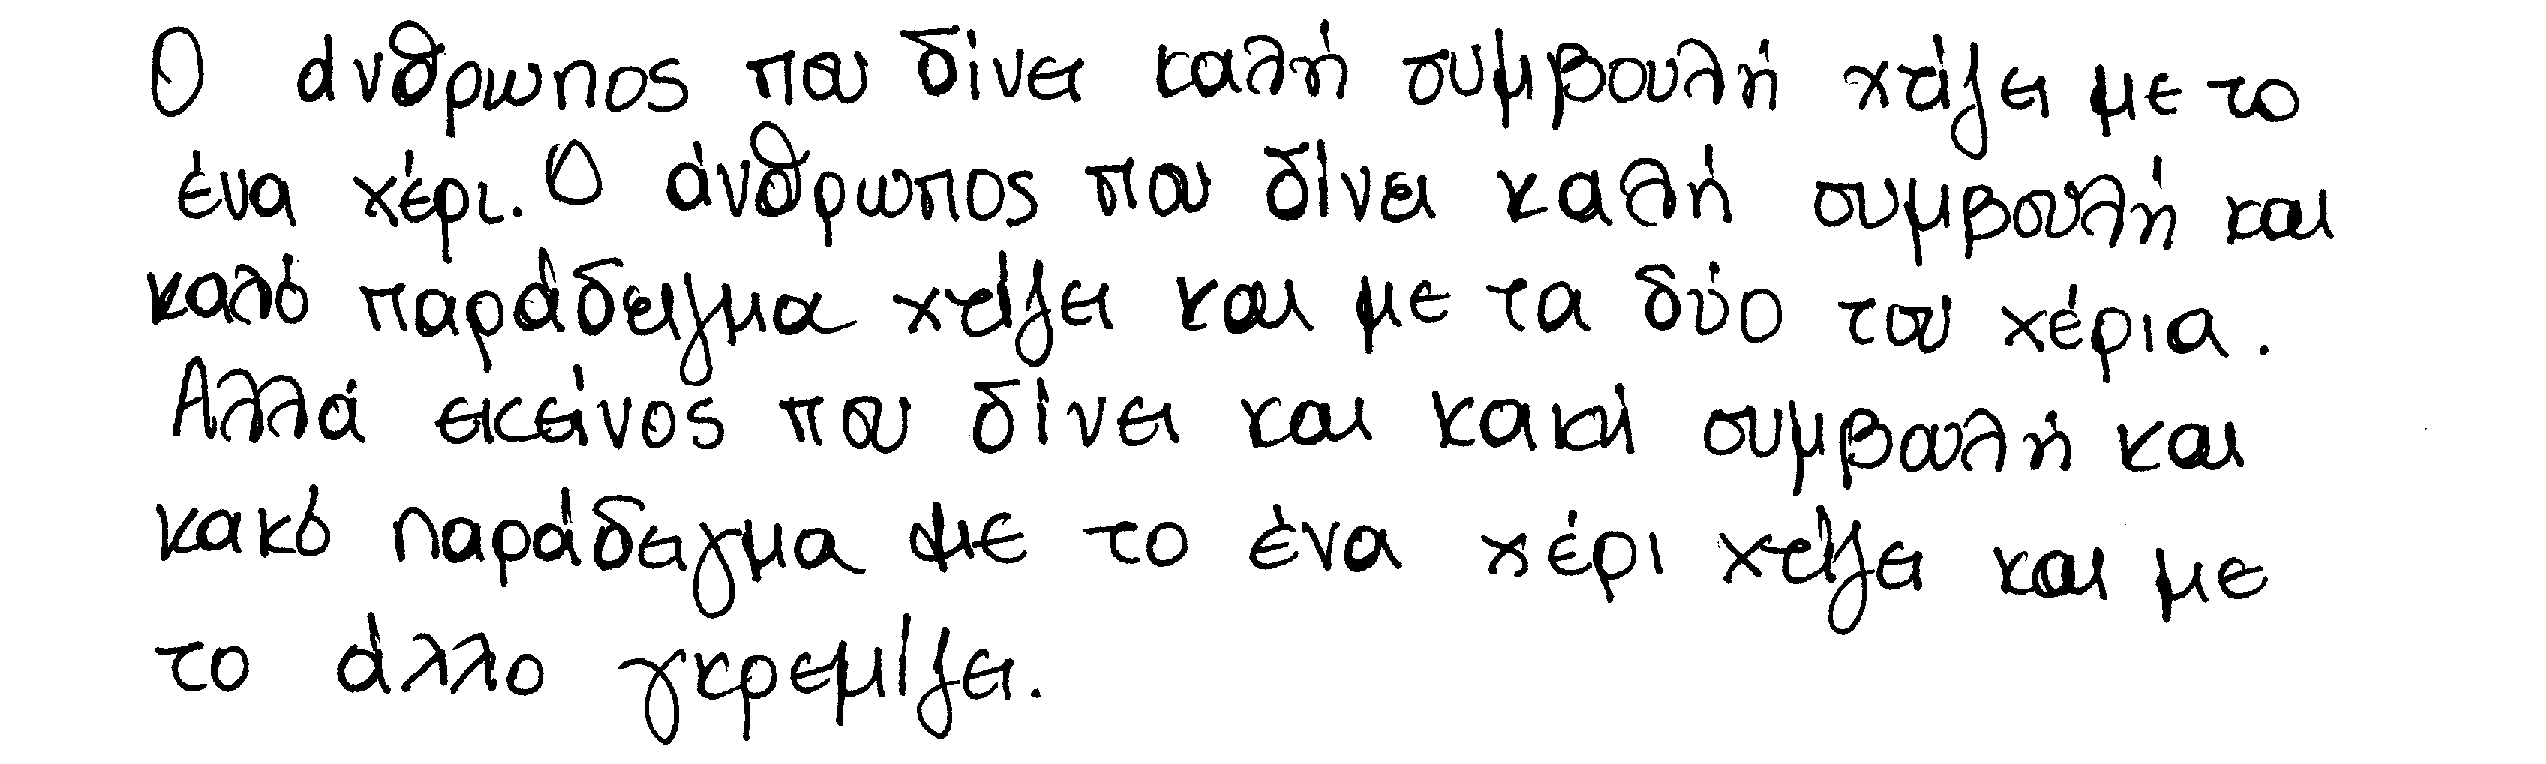 Ο άνθρωπος που δίνει καλή συμβουλή χτίζει με το
ένα χέρι. Ο άνθρωπος που δίνει καλή συμβουλή και
καλό παράδειγμα χτίζει και με τα δύο του χέρια.
Αλλά εκείνος που δίνει και κακή συμβουλή και
κακό παράδειγμα με το ένα χέρι χτίζει και με
το άλλο γκρεμίζει.